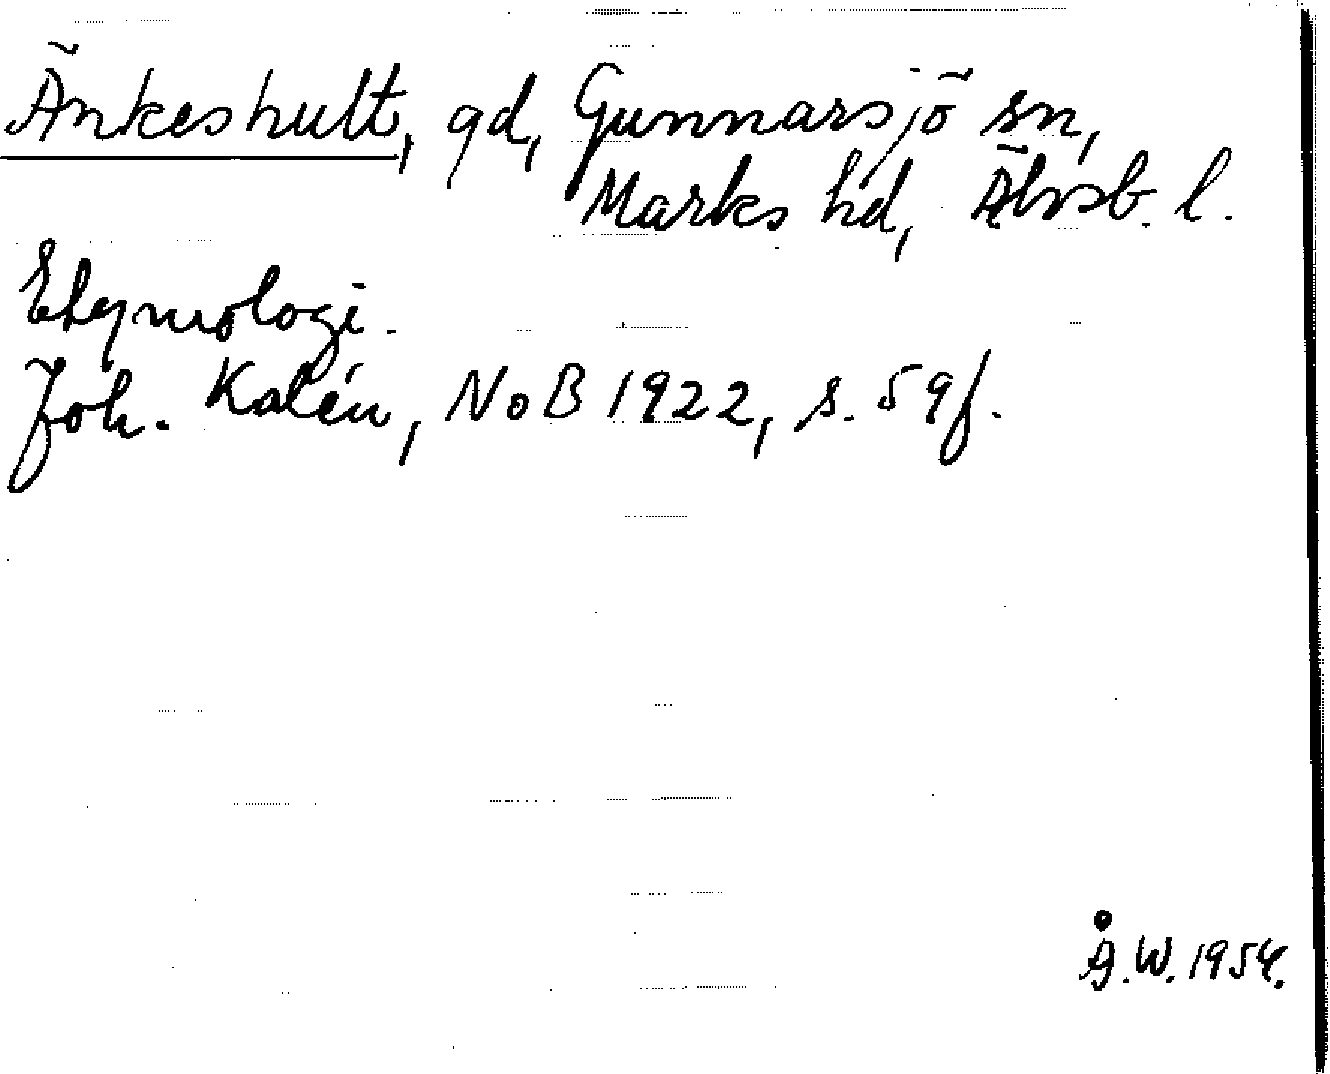 Änkeshult, gd, Gunnarsjö sn,
Marks hd, Älvsb. l.
Etymologi.
Joh. Kalén, NoB 1922, s. 59f.
Å.W. 1954.